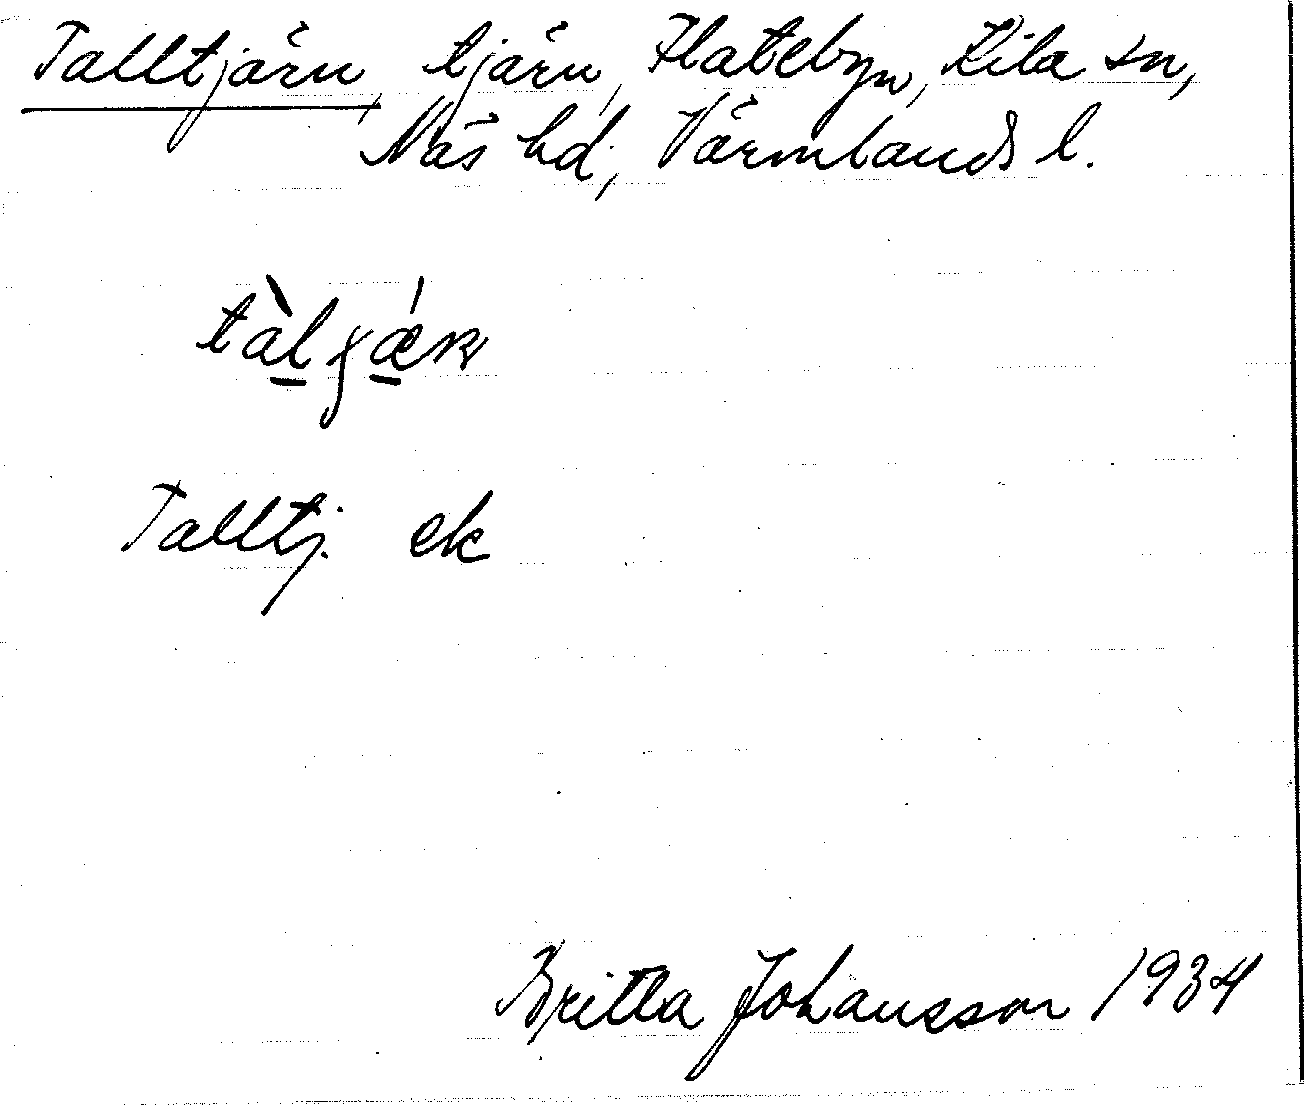 Talltjärn, tjärn, Flatebyn, Kila sn,
Näs hd, Värmlands l.
Talltj. ek
Britta Johansson 1934